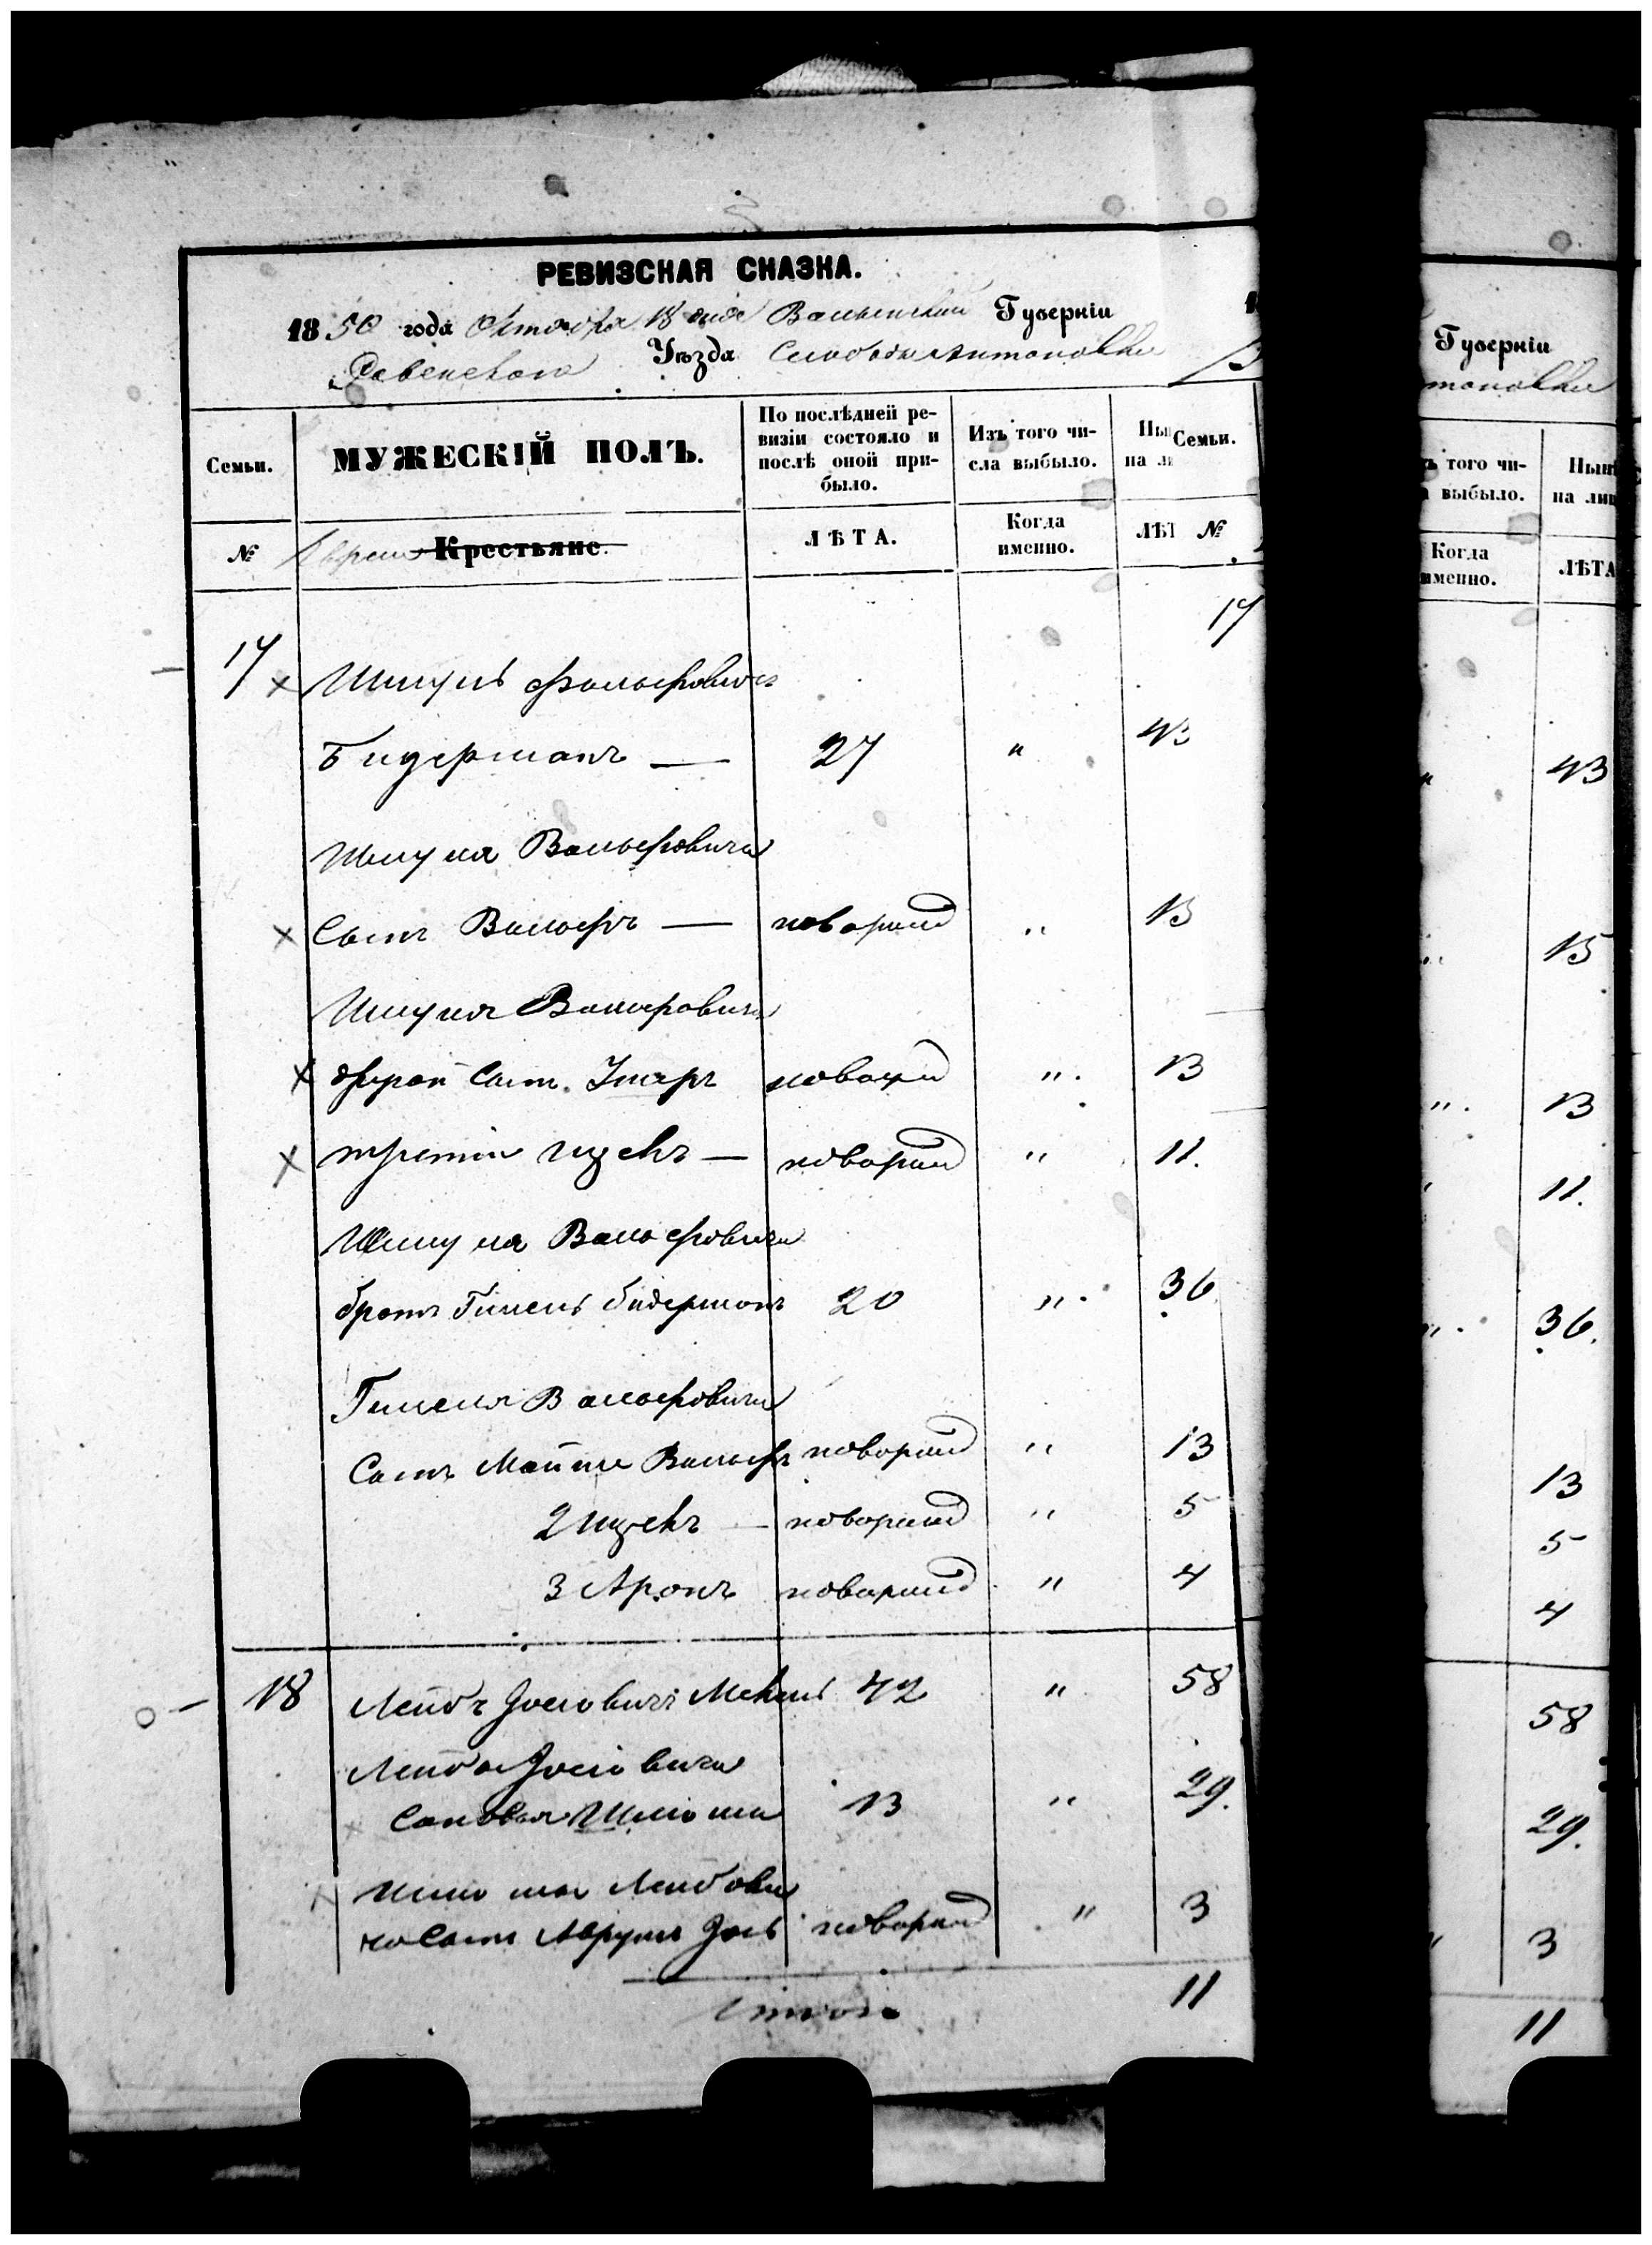 РЕВИЗСКАЯ СКАЗКА.
1850 года Октября 18 дня Волынской Губерніи
Ровенскаго Уѣзда Слободы Антоновки
Семьи. МУЖЕСКІЙ ПОЛЪ. По послѣдней ревизіи состояло и послѣ оной прибыло. Изъ того числа выбыло. Ны на ли Семьи.
№ Евреи Крестьяне. ЛѢТА. Когда именно. ЛѢТ №
17 Шмуль Вольфовичъ 17
Бидерманъ — 27 " 43
Шмуля Вольфовича
Сынъ Вольфъ — новорожд " 15
Шмуля Вольфовича
другой Сынъ новорожд " 13
третій Ицекъ — новорожд " 11.
Шмуля Вольфовича
братъ Гимель Бидерманъ 20 " 36.
Гимеля Вольфовича
Сынъ Мойше Вольфъ новорожд " 13
2 Ицекъ — новорожд " 5
3 Аронъ новорожд " 4
18 Лейбъ Іосіовичъ 42 " 58
Лейба Іосіовича
Сыновья Шліома 13 " 29.
Шліома Лейбови
ча Сынъ Аврумъ Іось новорожд " 3
Итого 11
Губерніи
тоновки
ъ того чи-
выбыло. Нын
на лиц
Когда
именно. ЛѢТА
" 43
" 15
" 13
" 11.
" 36.
13
5
4
58
29.
" 3
11